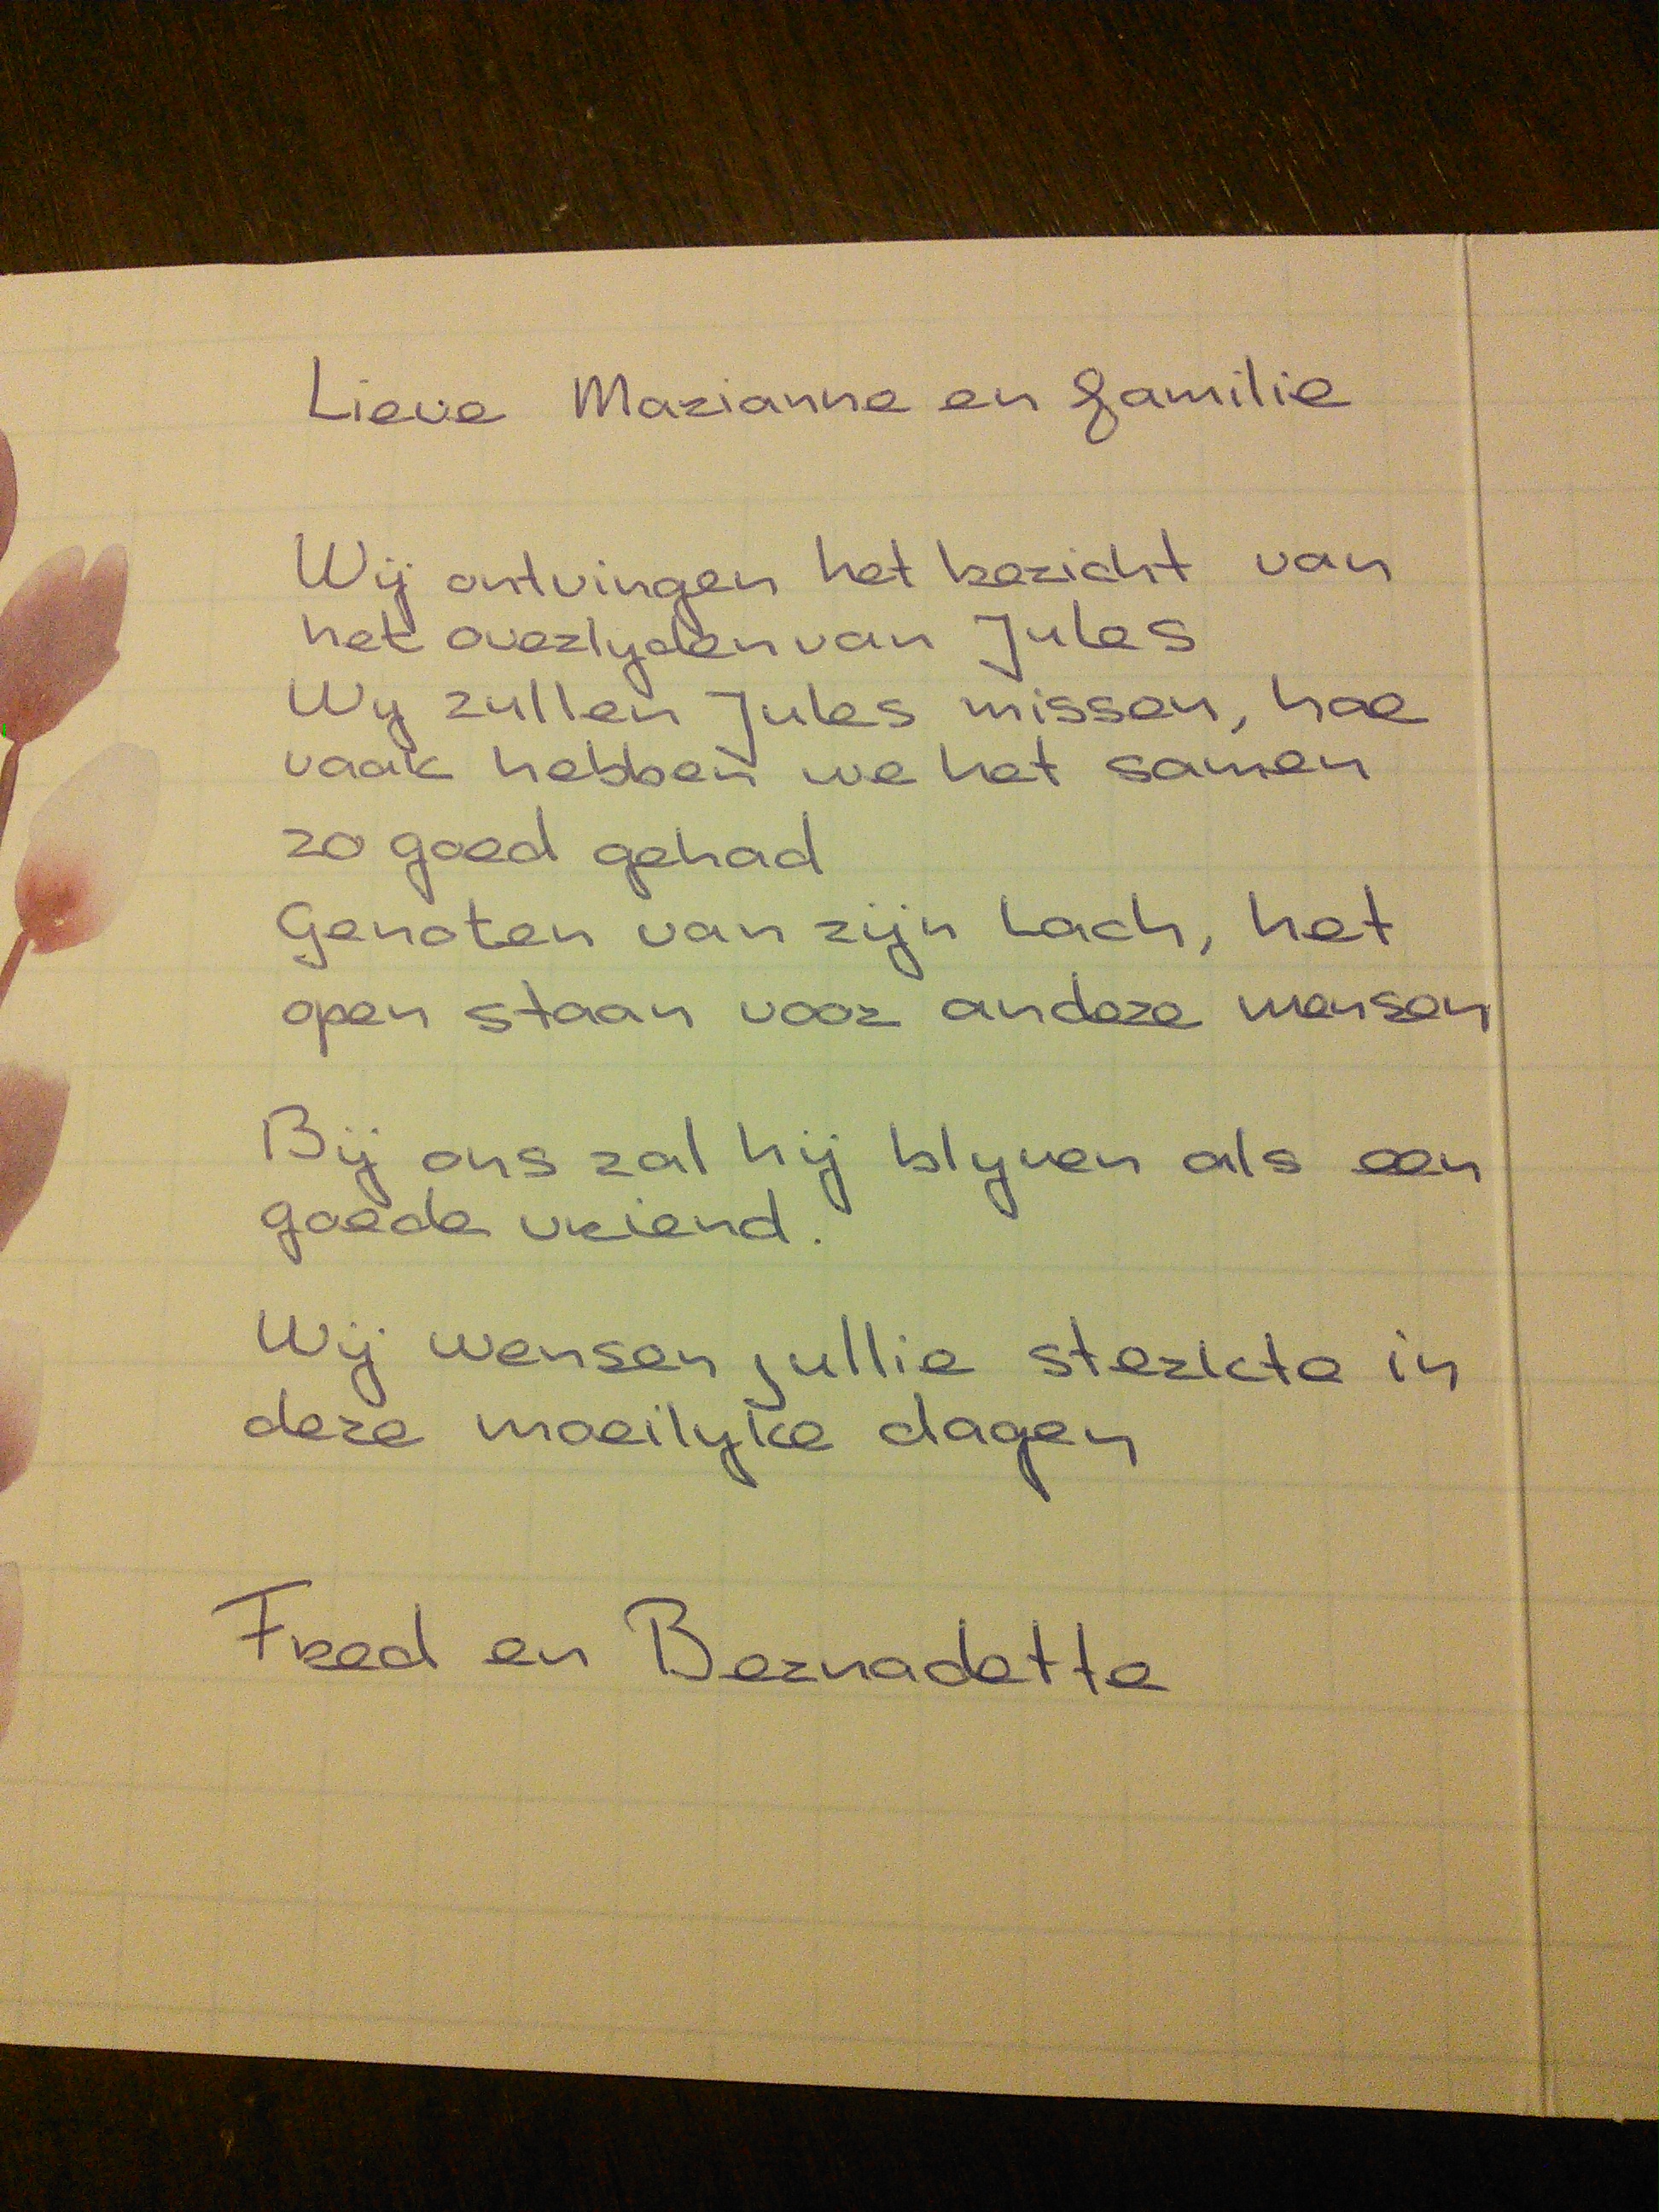 Lieve Marianne en familie
Wij ontvingen het bericht van
het overlyden van Jules
Wy zullen Jules missen, hoe
vaak hebben we het samen
zo goed gehad
Genoten van zijn lach, het
open staan voor andere mensen
Bij ons zal hij blyven als een
goede vriend.
Wij wensen jullie sterkte in
deze moeilyke dagen
Fred en Bernadette